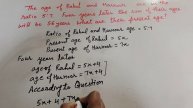 The age of Rahul and Haroon are in the
ratio 5:7. Four years later the sum of their ages
will be 56 years what are their present age?
Ratio of Rahul and Haroon = 5:7
Present age of Rahul = 5x
Present age of Haroon = 7x
Four years later
age of Rahul = 5x+4
age of Haroon = 7x+4
According to Question
5x+4+7x+4